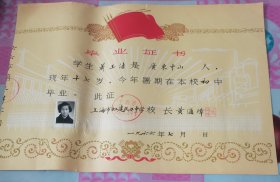 毕业证书
学生姜玉洁是广东中山人，
现年十七岁，今年暑期在本校初中
毕业，此证。
上海市中学校长黄
一九六六年七月日